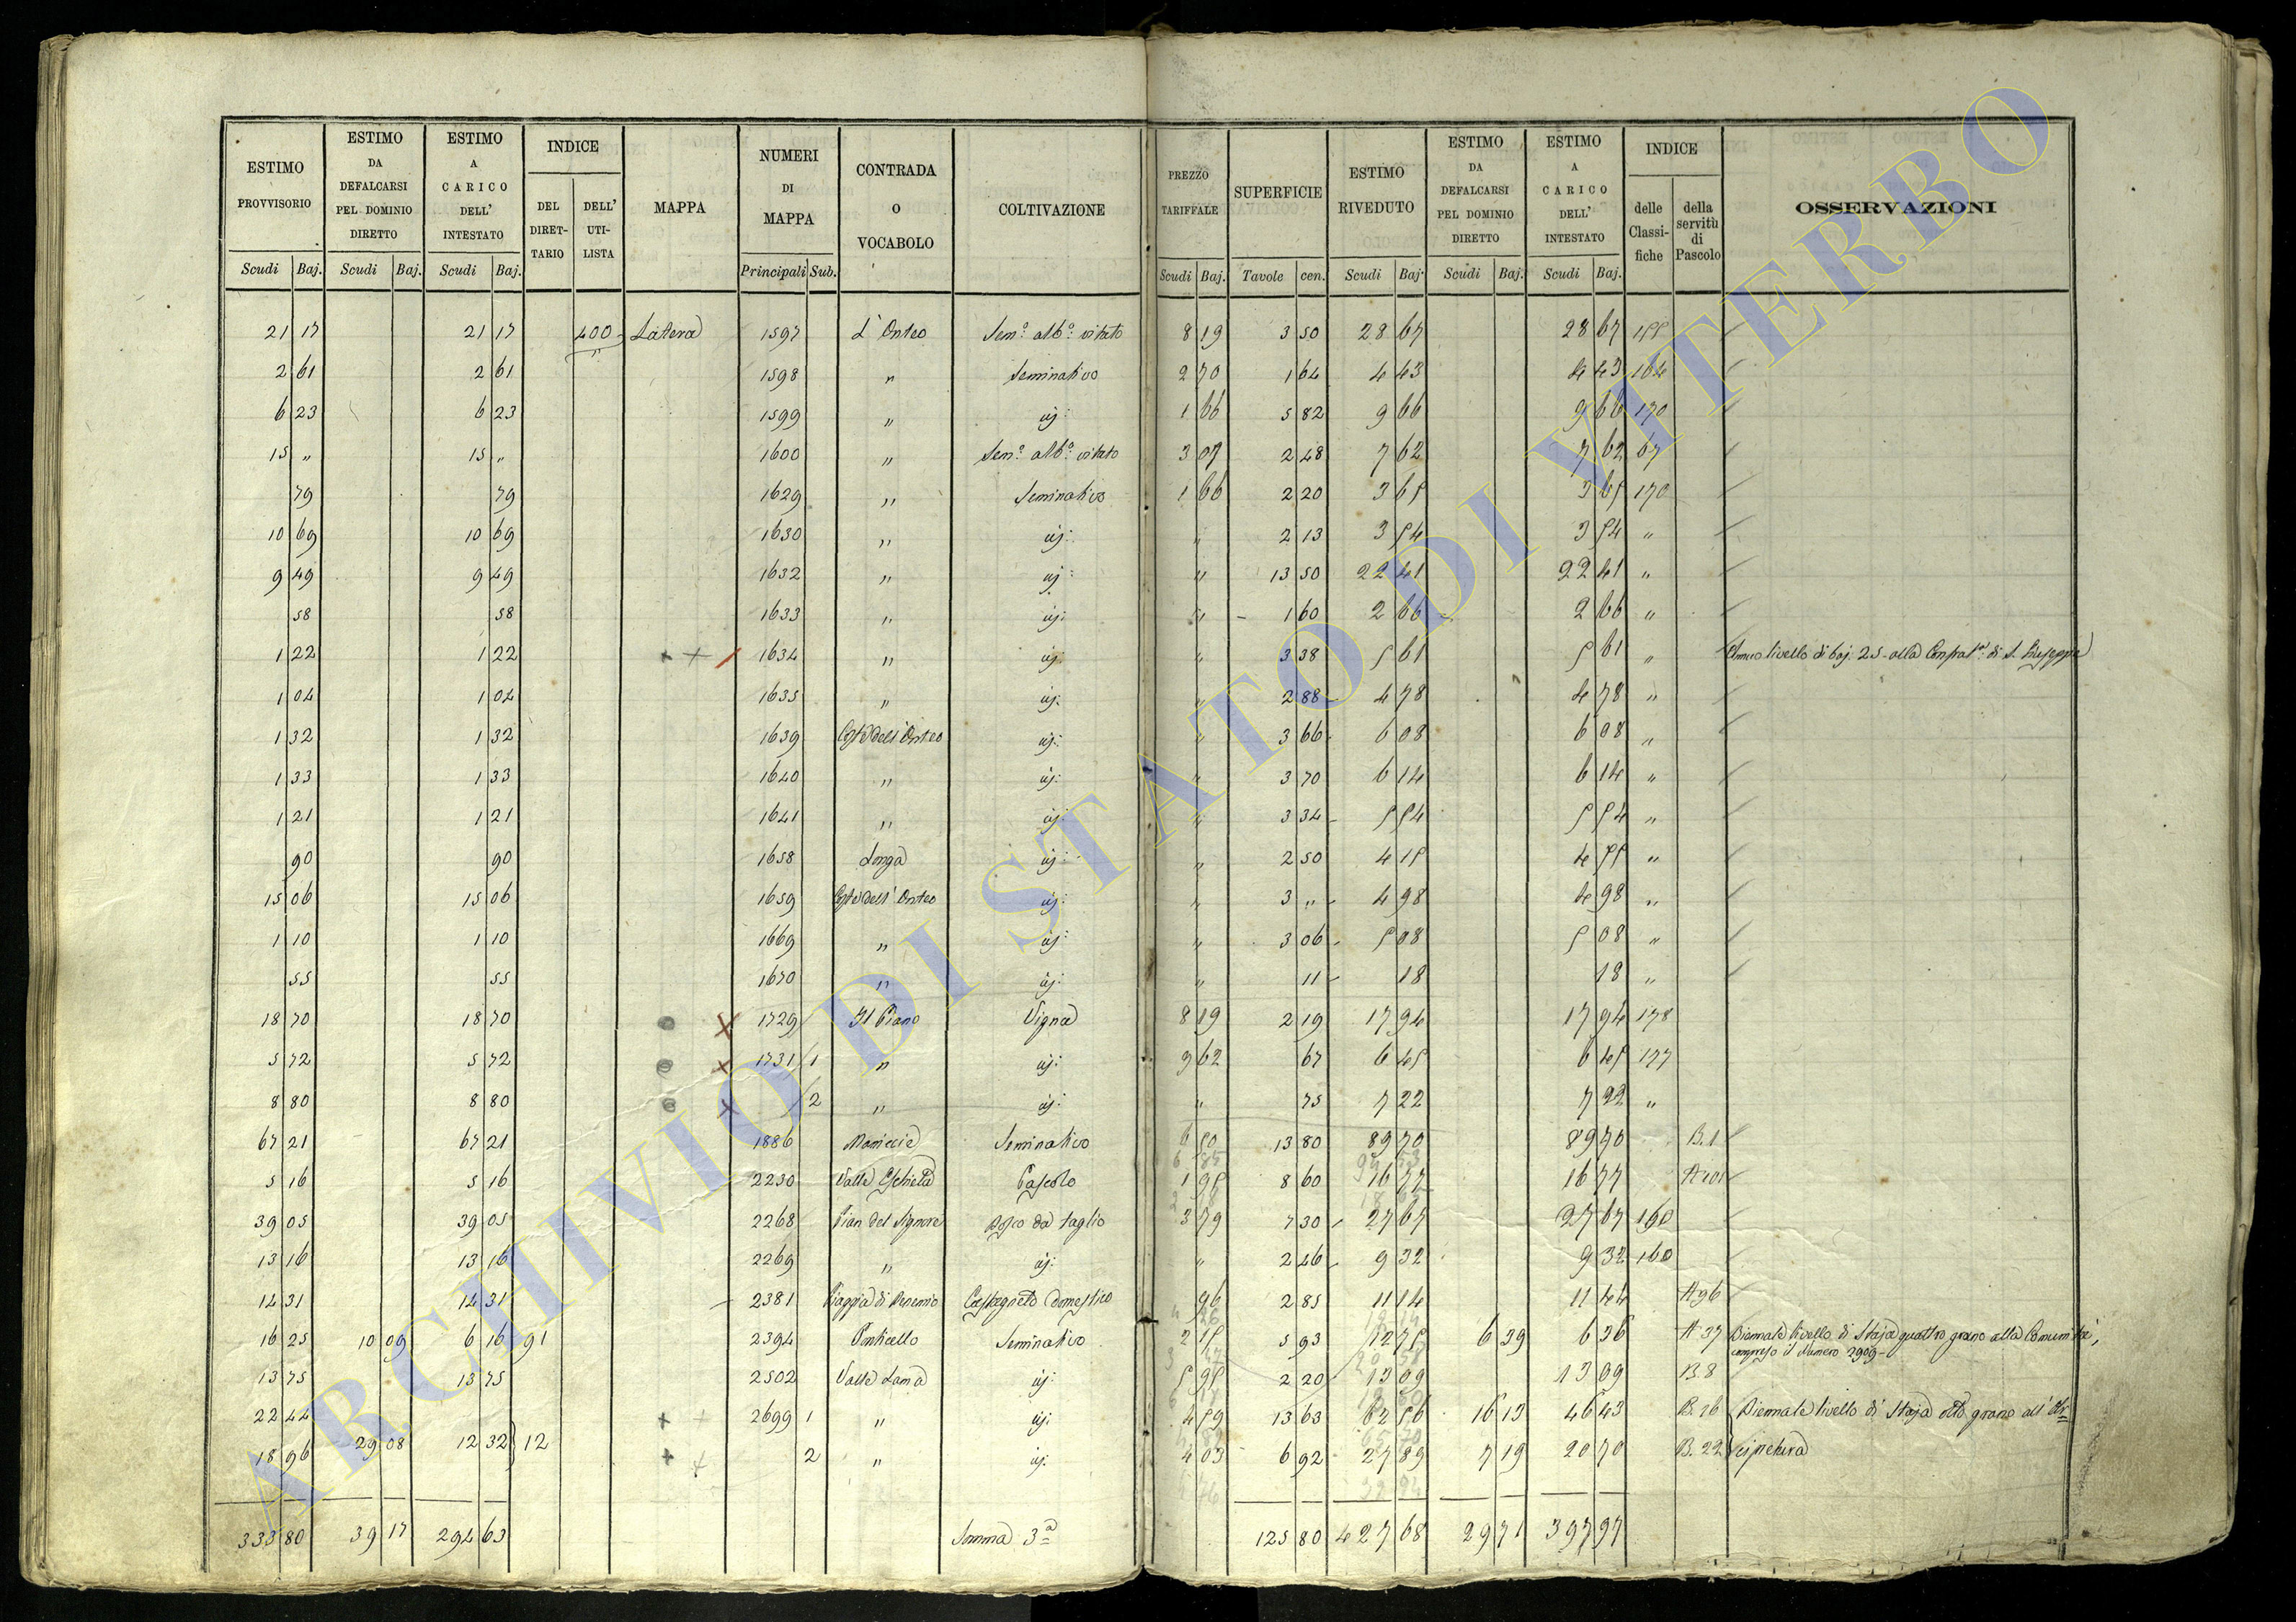 ESTIMO PROVVISORIO Scudi Baj. | ESTIMO DA DEFALCARSI PEL DOMINIO DIRETTO Scudi Baj. | ESTIMO A CARICO DELL' INTESTATO Scudi Baj. | INDICE DEL DIRET- TARIO | DELL' UTI- LISTA | MAPPA | NUMERI DI MAPPA Principali Sub. | CONTRADA O VOCABOLO | COLTIVAZIONE | PREZZO TARIFFALE Scudi Baj. | SUPERFICIE Tavole cen. | ESTIMO RIVEDUTO Scudi Baj. | ESTIMO DA DEFALCARSI PEL DOMINIO DIRETTO Scudi Baj. | ESTIMO A CARICO DELL' INTESTATO Scudi Baj. | INDICE delle Classi- fiche | della servitù di Pascolo | OSSERVAZIONI
21 17 21 17 400 Latera 1597 L' Onteo Sem.o alb.o vitato 8 19 3 50 28 67 28 67 155
2 61 2 61 1598 " Seminativo 2 70 1 64 4 43 4 43 164
6 23 6 23 1599 " id: 1 66 5 82 9 66 9 66 170
15 " 15 " 1600 " Sem.o alb.o vitato 3 07 2 48 7 62 7 62 67
79 79 1629 " Seminativo 1 66 2 20 3 65 3 65 170
10 69 10 69 1630 " id: " 2 13 3 54 3 54 "
9 49 9 49 1632 " id: " 13 50 22 41 22 41 "
58 58 1633 " id: " 1 60 2 66 2 66 "
1 22 1 22 1634 " id: " 3 38 5 61 5 61 " Annuo livello di baj. 25 alla Confrat.a di S. Giuseppe
1 04 1 04 1635 " id: " 2 88 4 78 4 78 "
1 32 1 32 1639 Coste dell' Onteo id: " 3 66 6 08 6 08 "
1 33 1 33 1640 " id: " 3 70 6 14 6 14 "
1 21 1 21 1641 " id: " 3 34 5 54 5 54 "
90 90 1658 Longa id: " 2 50 4 15 "
15 06 15 06 1659 Coste dell' Onteo id: " 3 " 4 98 4 98 "
1 10 1 10 1669 " id: " 3 06 5 08 5 08 "
55 55 1670 " id: " 11 18 18 "
18 70 18 70 1729 Il Piano Vigna 8 19 2 19 17 94 17 94 178
5 72 5 72 1731 1 " id: 9 62 67 6 45 6 45 177
8 80 8 80 2 " id: " 75 7 22 7 22 "
67 21 67 21 1886 Seminativo 6 50 13 80 89 70 89 70 B.1
5 16 5 16 2230 Valle Pascolo 1 95 8 60 16 77 16 77 A 101
39 05 39 05 2268 Pian del Signore Bosco da taglio 3 79 7 30 27 67 27 67 160
13 16 13 16 2269 " id: " 2 46 9 32 9 32 160
14 31 14 31 2381 Piaggia di Castagneto domestico 2 85 A 96
16 25 10 09 6 16 91 2394 Ponticello Seminativo 2 15 5 93 12 75 6 39 6 36 A 37 Biennale livello di Staja quattro grano alla Comunità,
compreso il Numero 2909
13 75 13 75 2502 Valle Lama id: 5 95 2 20 13 09 13 09 B.8
22 44 2699 1 " id: 4 59 13 63 62 56 16 13 46 43 B. 16 Biennale livello di Staja otto grano all' Ar=
18 96 29 08 12 32 12 2 " id. 4 03 6 92 27 89 7 19 20 70 B. 22 cipretura
333 80 39 17 294 63 Somma 3a 125 80 427 68 29 71 397 97
ARCHIVIO DI STATO DI VITERBO